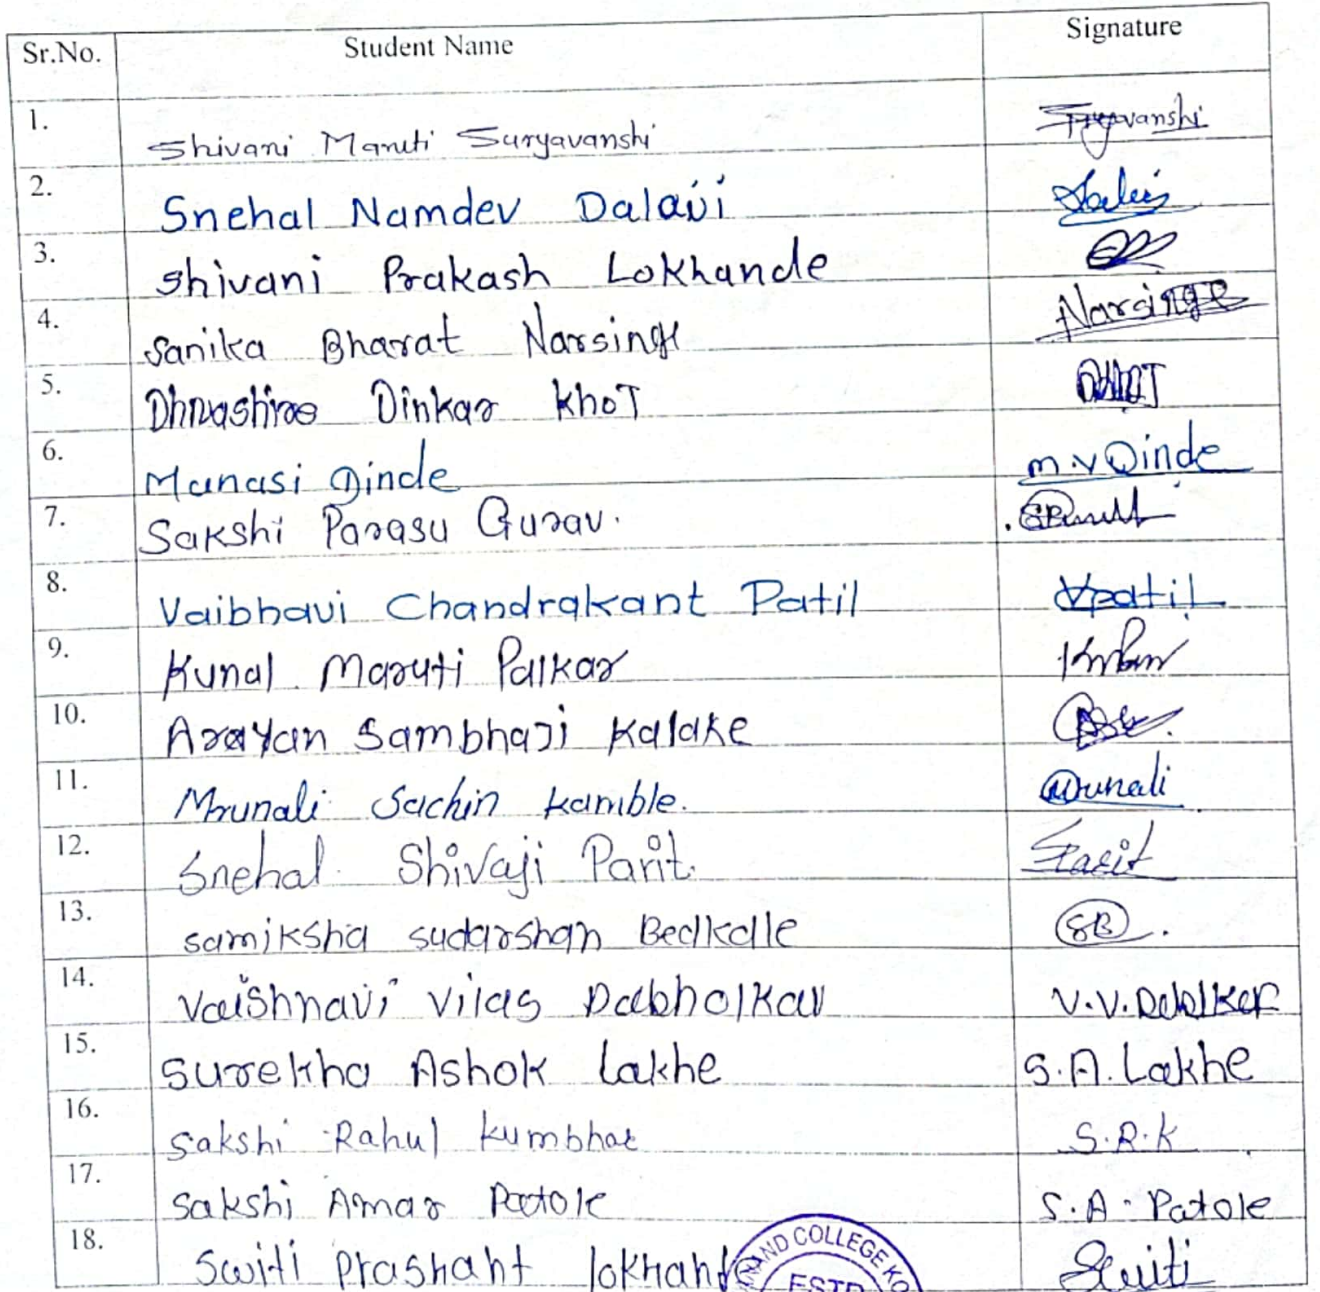 Sr.No. Student Name Signature
1. Shivani Maruti Suryavanshi Suryavanshi
2. Snehal Namdev Dalavi
3. Shivani Prakash Lokhande
4. Sanika Bharat Narsingh Narsinge
5. Dinkar Khot
6. Manasi Dinde M.V Dinde
7. Sakshi Parasu Gurav.
8. Vaibhavi Chandrakant Patil Vpatil
9. Kunal Maruti Palkar
10. Arayan Sambhaji Kalake
11. Mrunali Sachin Kamble. Mrunali
12. Snehal Shivaji Parit. Parit
13. Samiksha Sudarshan Bedkalle SB.
14. Vaishnavi Vilas Dabholkar V.V.
15. Surekha Ashok Lakhe S.A. Lakhe
16. Sakshi Rahul Kumbhar S.R.K
17. Sakshi Amar Patole S.A-Patole
18. Switi Prashant Switi
NAND COLLEGE KO
ESTD